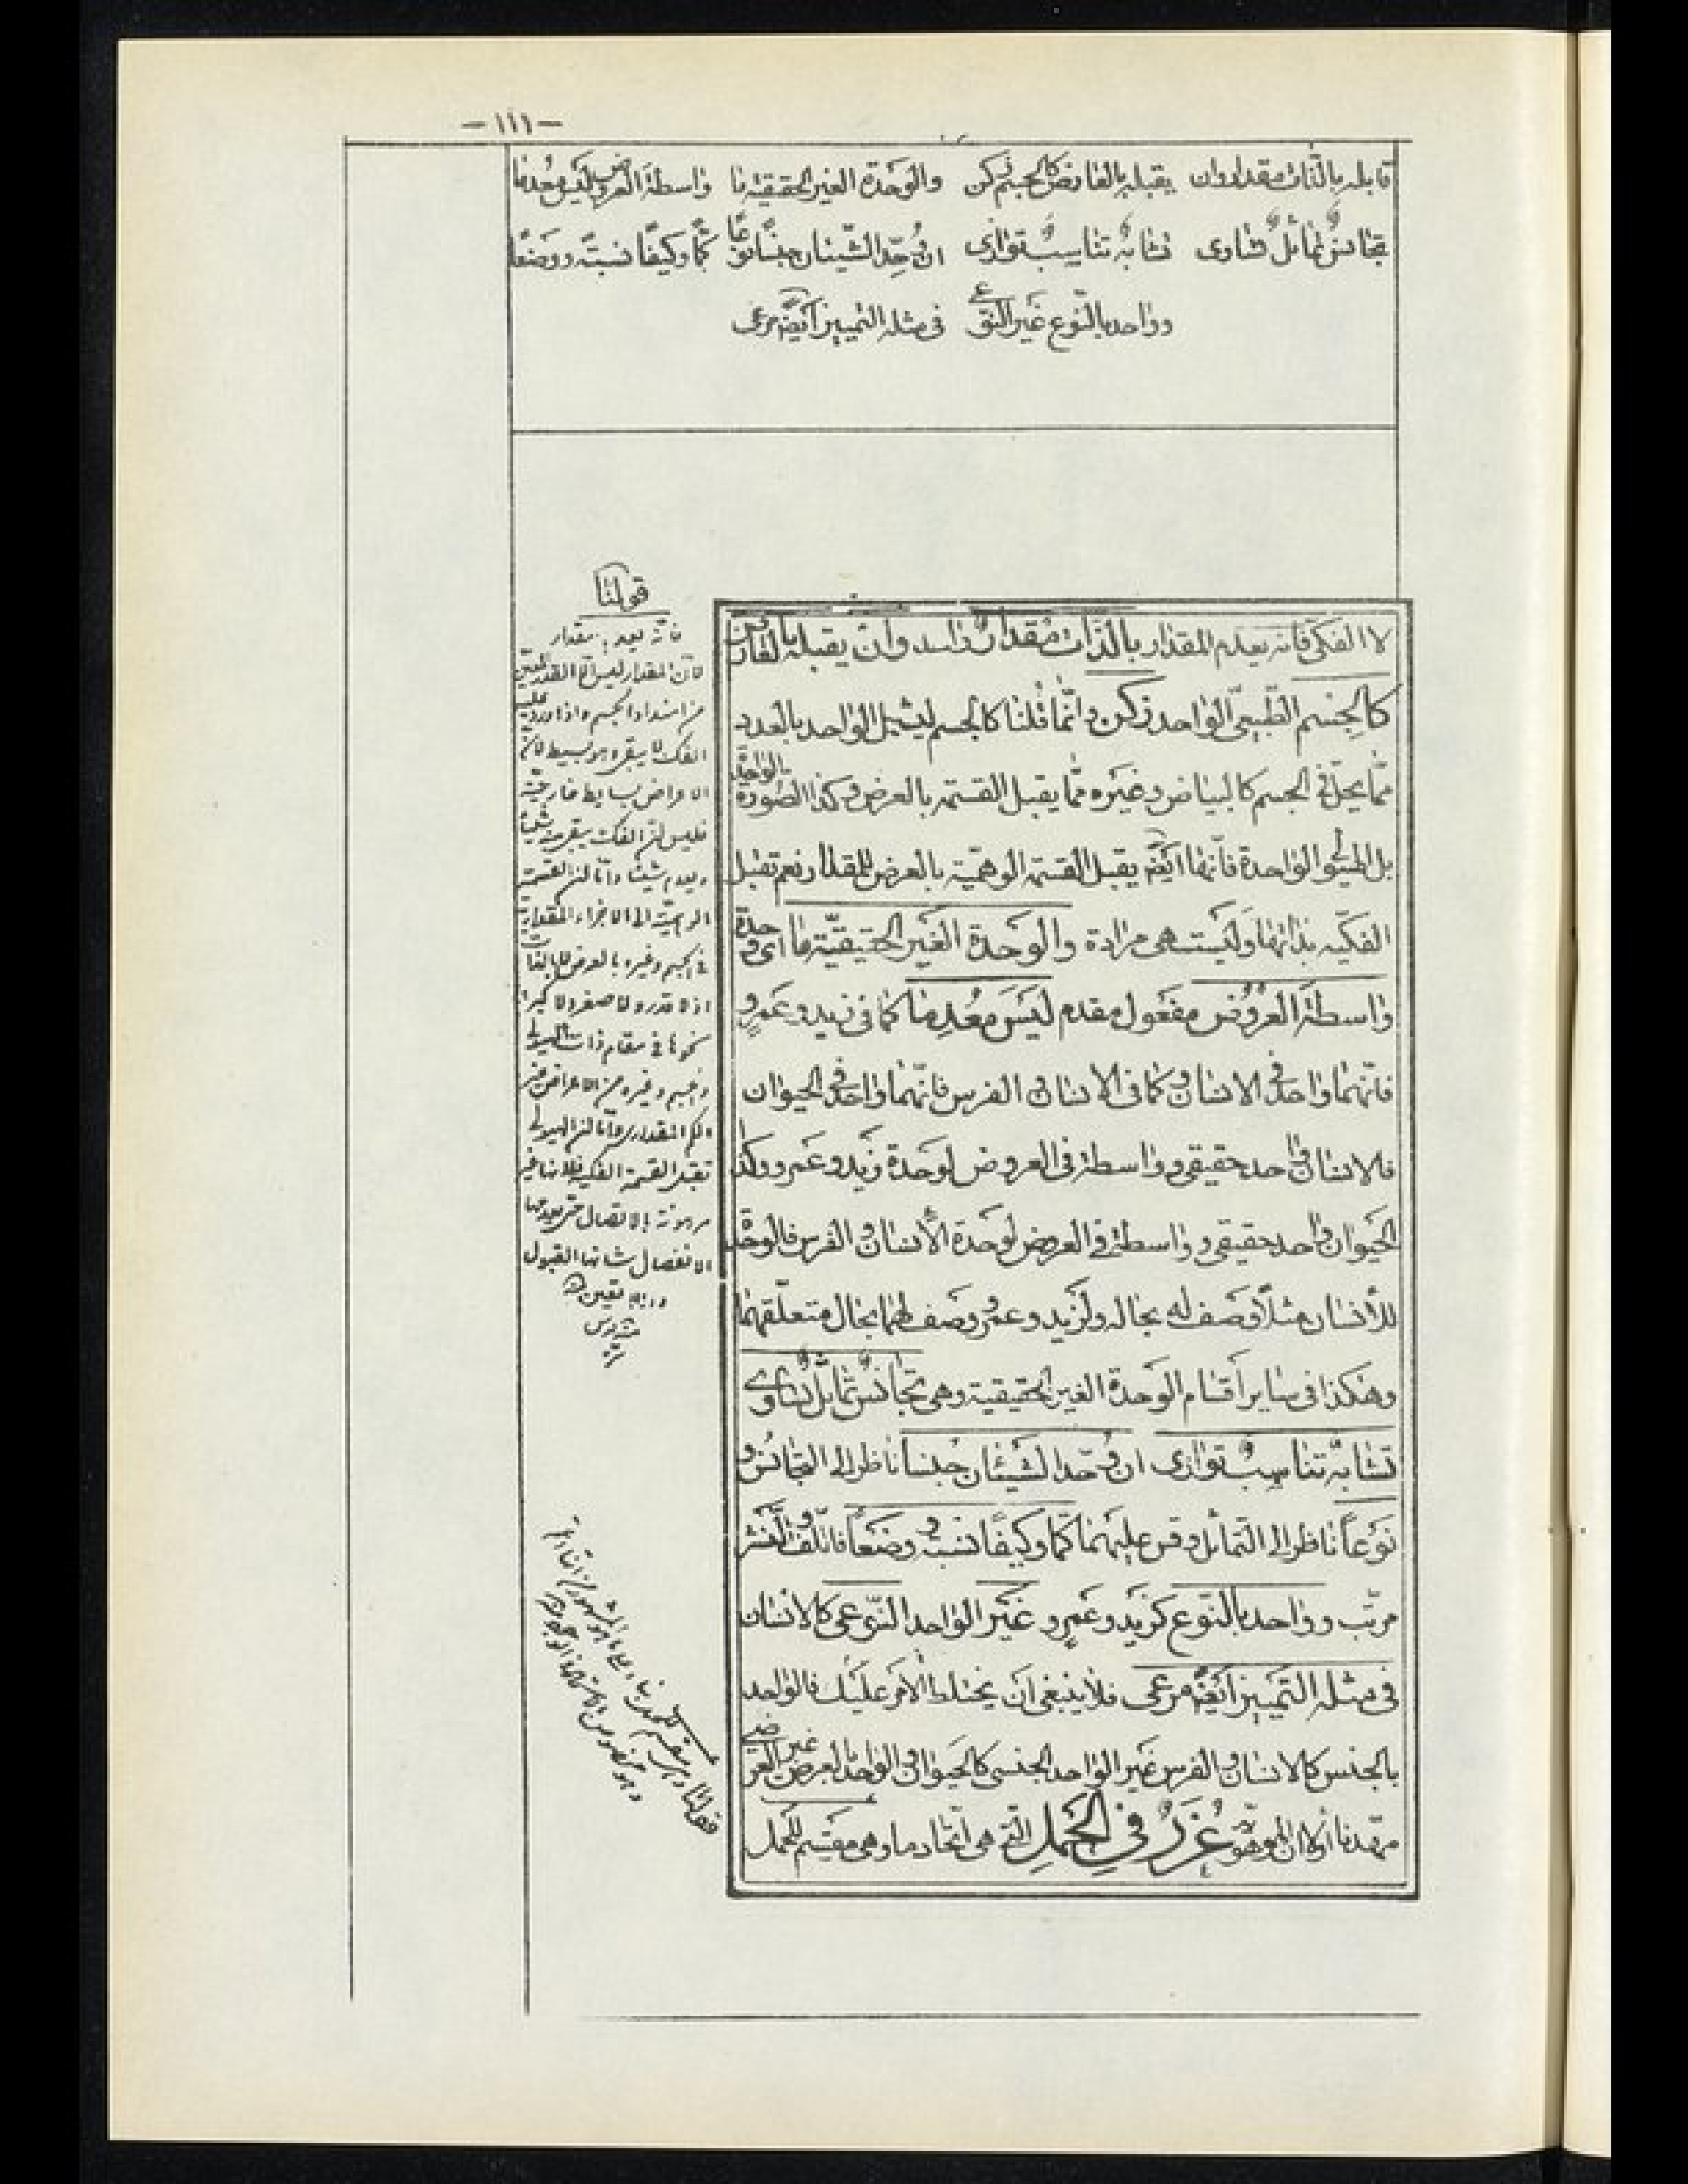 -١١١-
قابله بالذات مقدار وان يقبله بالعارض كالجسم زكن والوحدة الغير الحقيقية ما واسطة العروض ليس معدما
تجانس تماثل تساوى تشابه تناسب توازى ان وحد الشيئان جنسا نوعا كما وكيفا نسبة ووضعا
وواحد بالنوع غير النوعى فى مثله التمييز ايضا مرعى
لا الفكى فانه يعدم المقدار بالذات مقدار واسد وان يقبله بالعارض
كالجسم الطبيعى الواحد زكن وانما قلنا كالجسم ليشمل الواحد بالعدد
مما يحل فى الجسم كالبياض وغيره مما يقبل القسمة بالعرض وكذا الصورة الواحدة
بل الهيولى الواحدة فانها ايضا يقبل القسمة الوهمية بالعرض للمقدار نعم تقبل
الفكية بذاتها وليست هى مرادة والوحدة الغير الحقيقية ما اى وحدة
واسطة العروض مفعول مقدم ليس معدما كما فى زيد وعمرو
فانهما واحد فى الانسان وكما فى الانسان والفرس فانهما واحد فى الحيوان
فالانسان واحد حقيقى وواسطة فى العروض لوحدة زيد وعمرو وكذا
الحيوان واحد حقيقى وواسطة فى العروض لوحدة الانسان والفرس فالوحدة
للانسان مثلا وصف له بحاله ولزيد وعمرو وصف لهما بحال متعلقهما
وهكذا فى ساير أقسام الوحدة الغير الحقيقية وهى تجانس تماثل تساوى
تشابه تناسب توازى ان وحد الشيئان جنسا ناظر الى التجانس و
نوعا ناظر الى التماثل وقس عليهما كما وكيفا نسبة ووضعا فاللف والنشر
مرتب وواحد بالنوع كزيد وعمرو غير الواحد النوعى كالانسان
فى مثله التمييز ايضا مرعى فلا ينبغى ان يختلط الامر عليك فالواحد
بالجنس كالانسان والفرس غير الواحد الجنسى كالحيوان والواحد بالعرض غير العرضى
غرر فى الحمل التى هى اتحاد ما وهى مقسم للحمل
قولنا
فانه يعدم المقدار
لان المقدار ليس الا القدر المعين
من امتداد الجسم واذا ورد عليه
الفك لا يبقى وهو بسيط لان
الاعراض بسايط خارجية
فليس ان الفك يبقى منه شيئا
ويعدم شيئا وانما ان القسمة
الوهمية الى الاجزاء المقدارية
فى الجسم وغيره بالعرض لا بالذات
اذ لا قدر ولا صغر ولا كبر
نحوها فى مقام ذات الهيولى
والجسم وغيره من الاعراض غير
الكم المقدارى وانما ان الهيولى
تقبل القسمة الفكية فلانها غير
مرهونة بالاتصال حتى يعدمها
الانفصال شانها القبول